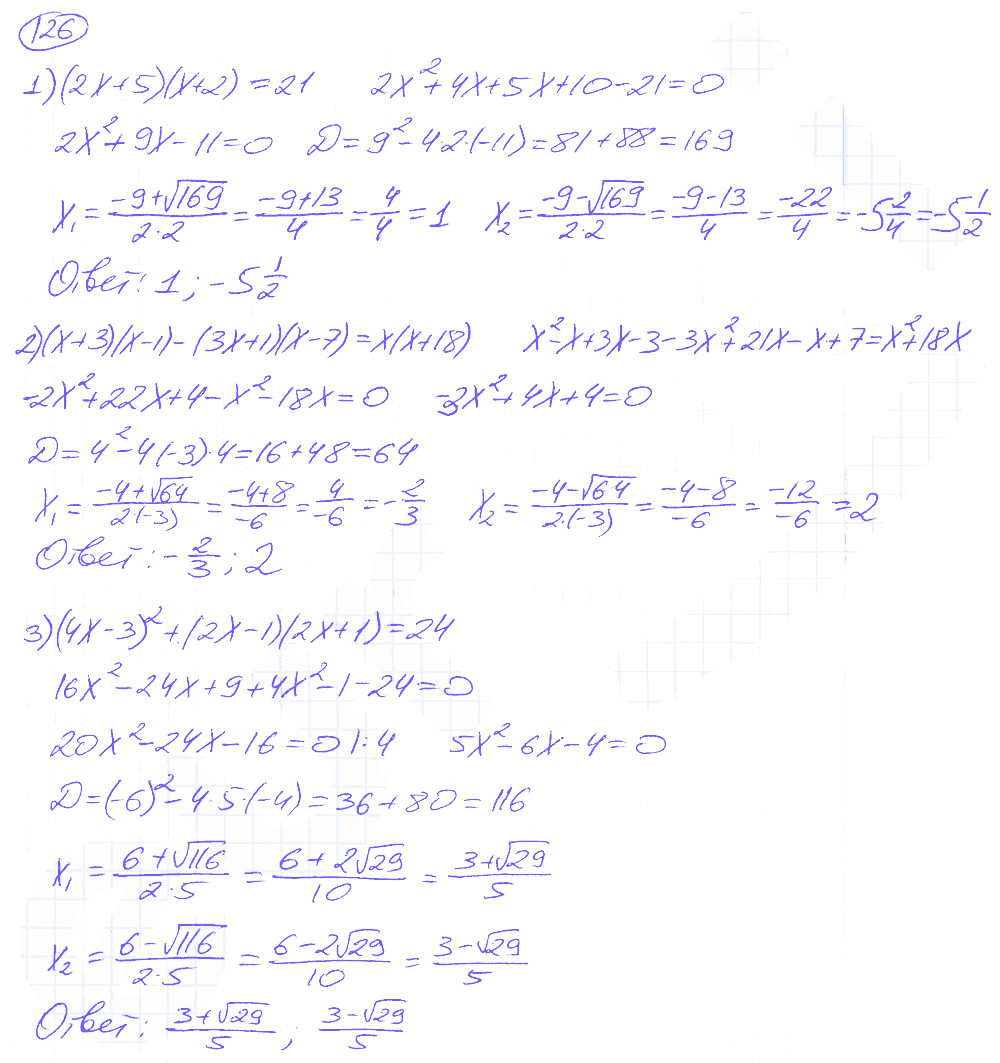 126
1) (2x+5)(x+2) = 21   2x²+4x+5x+10-21=0
2x²+9x-11=0   D=9²-4·2·(-11)=81+88=169
x₁ = (-9+√169)/(2·2) = (-9+13)/4 = 4/4 = 1   x₂ = (-9-√169)/(2·2) = (-9-13)/4 = -22/4 = -5 2/4 = -5 1/2
Ответ: 1; -5 1/2
2) (x+3)(x-1) - (3x+1)(x-7) = x(x+18)   x²-x+3x-3-3x²+21x-x+7=x²+18x
-2x²+22x+4-x²-18x=0   -3x²+4x+4=0
D=4²-4(-3)·4=16+48=64
x₁ = (-4+√64)/(2·(-3)) = (-4+8)/(-6) = 4/(-6) = -2/3   x₂ = (-4-√64)/(2·(-3)) = (-4-8)/(-6) = -12/(-6) = 2
Ответ: -2/3; 2
3) (4x-3)²+(2x-1)(2x+1)=24
16x²-24x+9+4x²-1-24=0
20x²-24x-16=0 |:4   5x²-6x-4=0
D=(-6)²-4·5·(-4)=36+80=116
x₁ = (6+√116)/(2·5) = (6+2√29)/10 = (3+√29)/5
x₂ = (6-√116)/(2·5) = (6-2√29)/10 = (3-√29)/5
Ответ: (3+√29)/5; (3-√29)/5